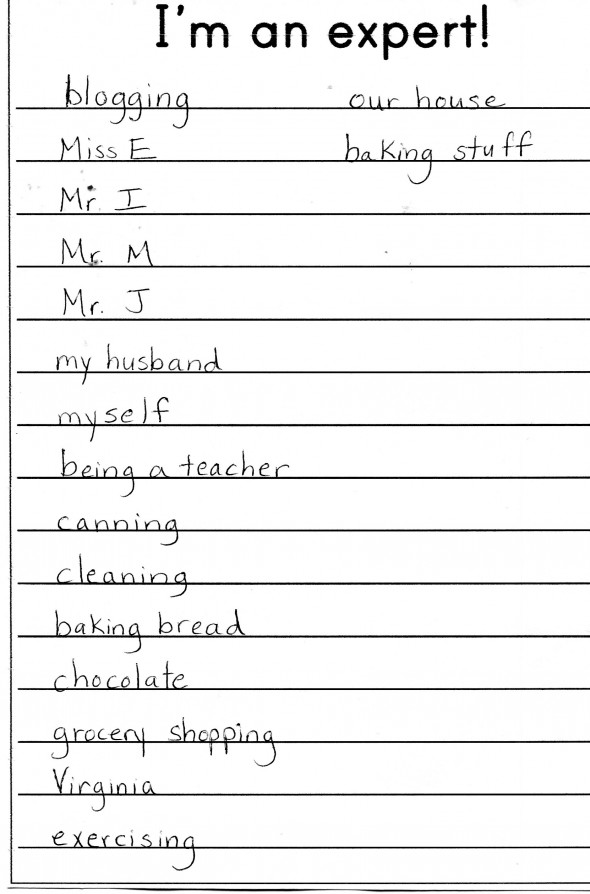 I'm an expert!
blogging our house
Miss E baking stuff
Mr. I
Mr. M
Mr. J
my husband
myself
being a teacher
canning
cleaning
baking bread
chocolate
grocery shopping
Virginia
exercising